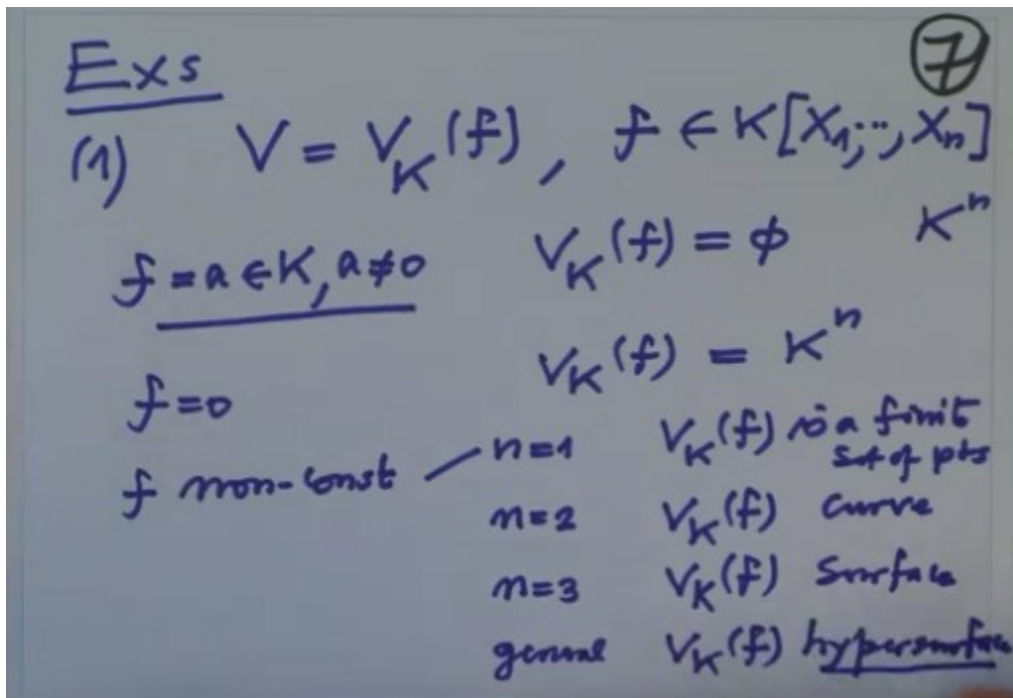 Exs ⑦
(1) V = V_K(f), f ∈ K[X_1,..,X_n]
f = a ∈ K, a ≠ 0 V_K(f) = ϕ K^n
f = 0 V_K(f) = K^n
f non-const n=1 V_K(f) is a finit
set of pts
n=2 V_K(f) curve
n=3 V_K(f) Surface
general V_K(f) hypersurface